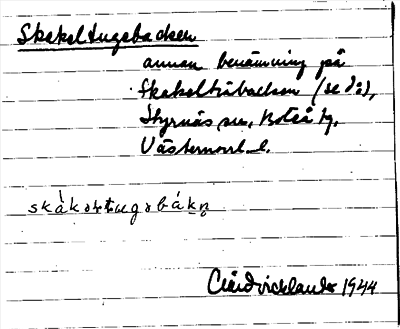 Skakeltugebacken
annan benämning på
Skakelträbacken (se d:o),
Styrnäs sn, Boteå tg.
Västernorrl. l.
skàkoḷtugobákn̥
1944